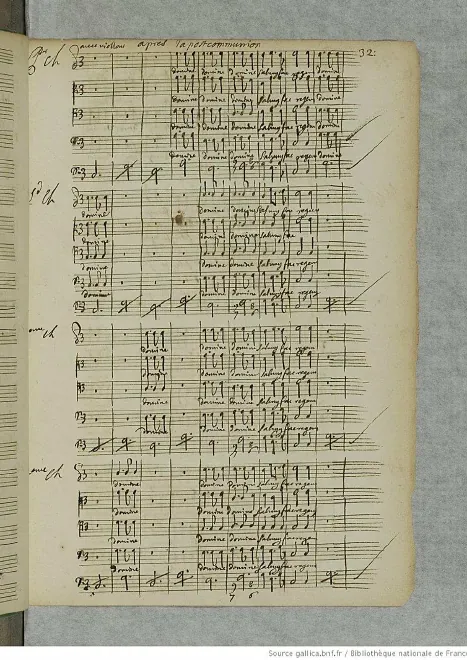 avec violons après la postcommunion
32.
1er ch
domine domine domine salvum fac regem domine
domine domine domine salvum fac regem domine
domine domine domine salvum fac regem domine
domine domine domine salvum fac regem domine
d ch
domine domine domine salvum fac regem
domine domine domine salvum fac
domine domine domine salvum fac regem
domine domine domine salvum fac regem
eme ch
domine domine domine salvum fac regem
domine domine domine salvum fac regem
domine domine domine salvum fac regem
domine domine domine salvum fac regem
eme ch
domine domine domine salvum fac regem
domine domine domine salvum fac regem
domine domine domine salvum fac regem
domine domine domine salvum fac regem
7 6
Source gallica.bnf.fr / Bibliothèque nationale de France